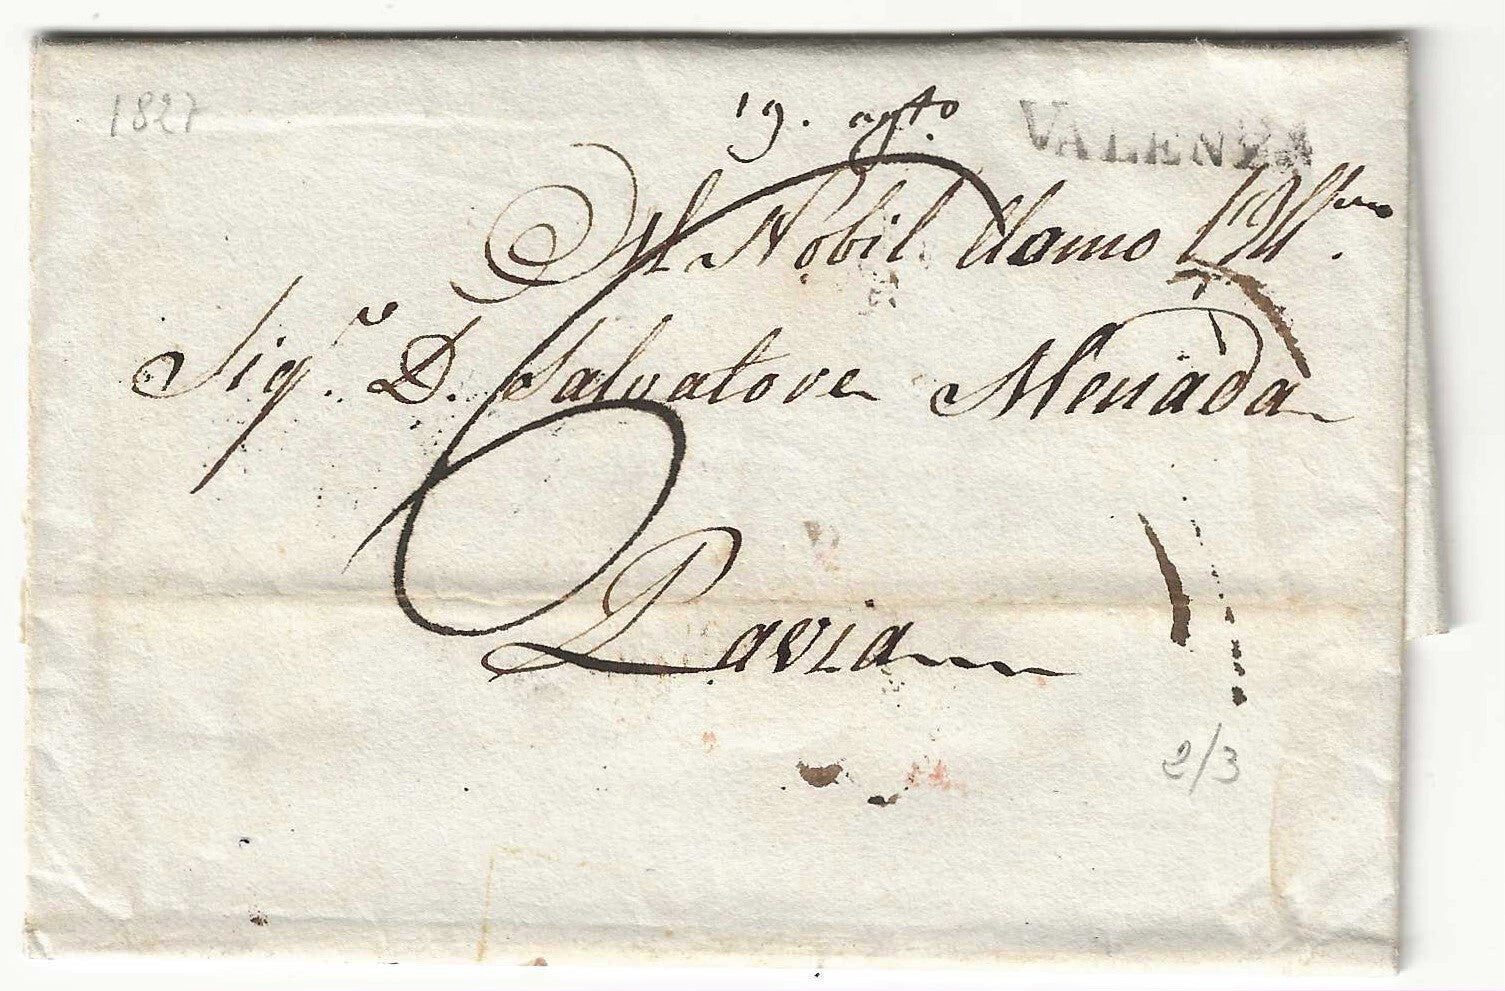 1827
19. agto.
VALENZA
Al Nobil Uomo
Sigr. D. Salvatore Menada
Pavia
2/3